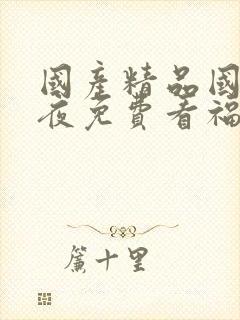 國產精品國
夜免費看福
簾十里